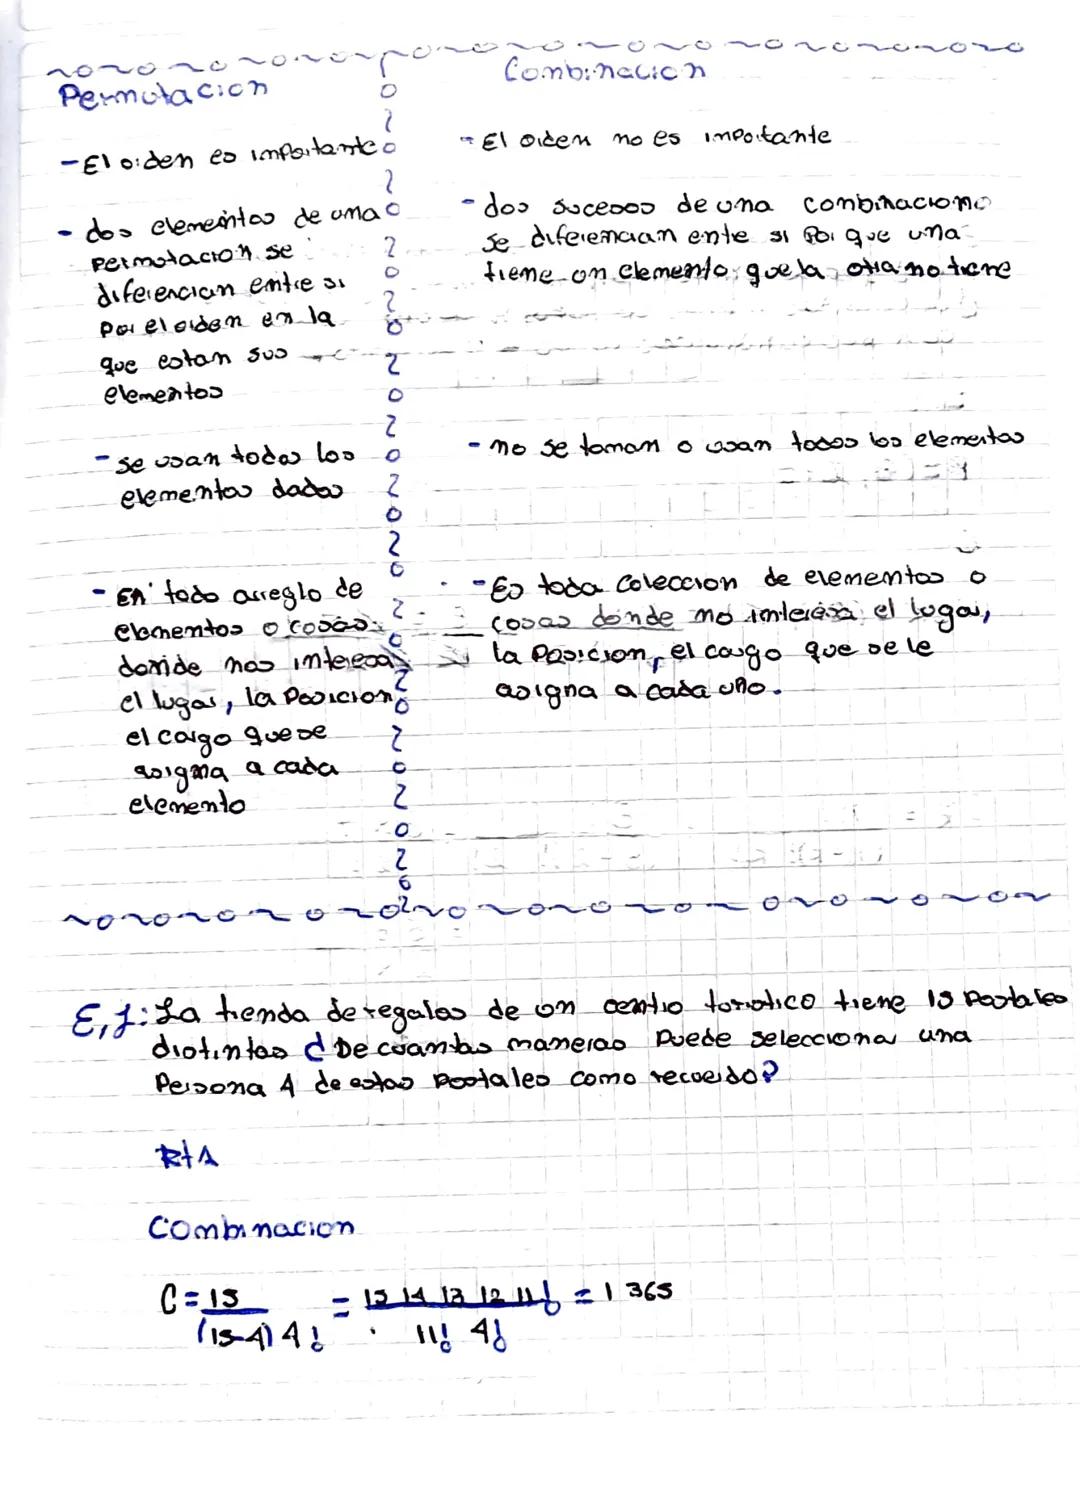 Permutacion
- El orden es importante
- dos elementos de una
permutacion se
diferencian entre si
por el orden en la
que estan sus
elementos
- se usan todos los
elementos dados
- En todo arreglo de
elementos o cosas
donde nos interesa
el lugar, la posicion
el cargo que se
asigna a cada
elemento
Combinacion
- El orden no es importante
- dos sucesos de una combinacion
se diferencian ente si por que una
tiene un elemento que la otra no tiene
- no se toman o usan todos los elementos
- Es toda coleccion de elementos o
cosas donde no interesa el lugar,
la posicion, el cargo que se le
asigna a cada uno.
Ej: La tienda de regalos de un centro turistico tiene 15 postales
distintas ¿ De cuantas maneras puede selecciona una
Persona 4 de estas postales como recuerdo?
RtA
Combinacion
C = 15 / (15-4) 4! = 15 14 13 12 11! / 11! 4! = 1 365